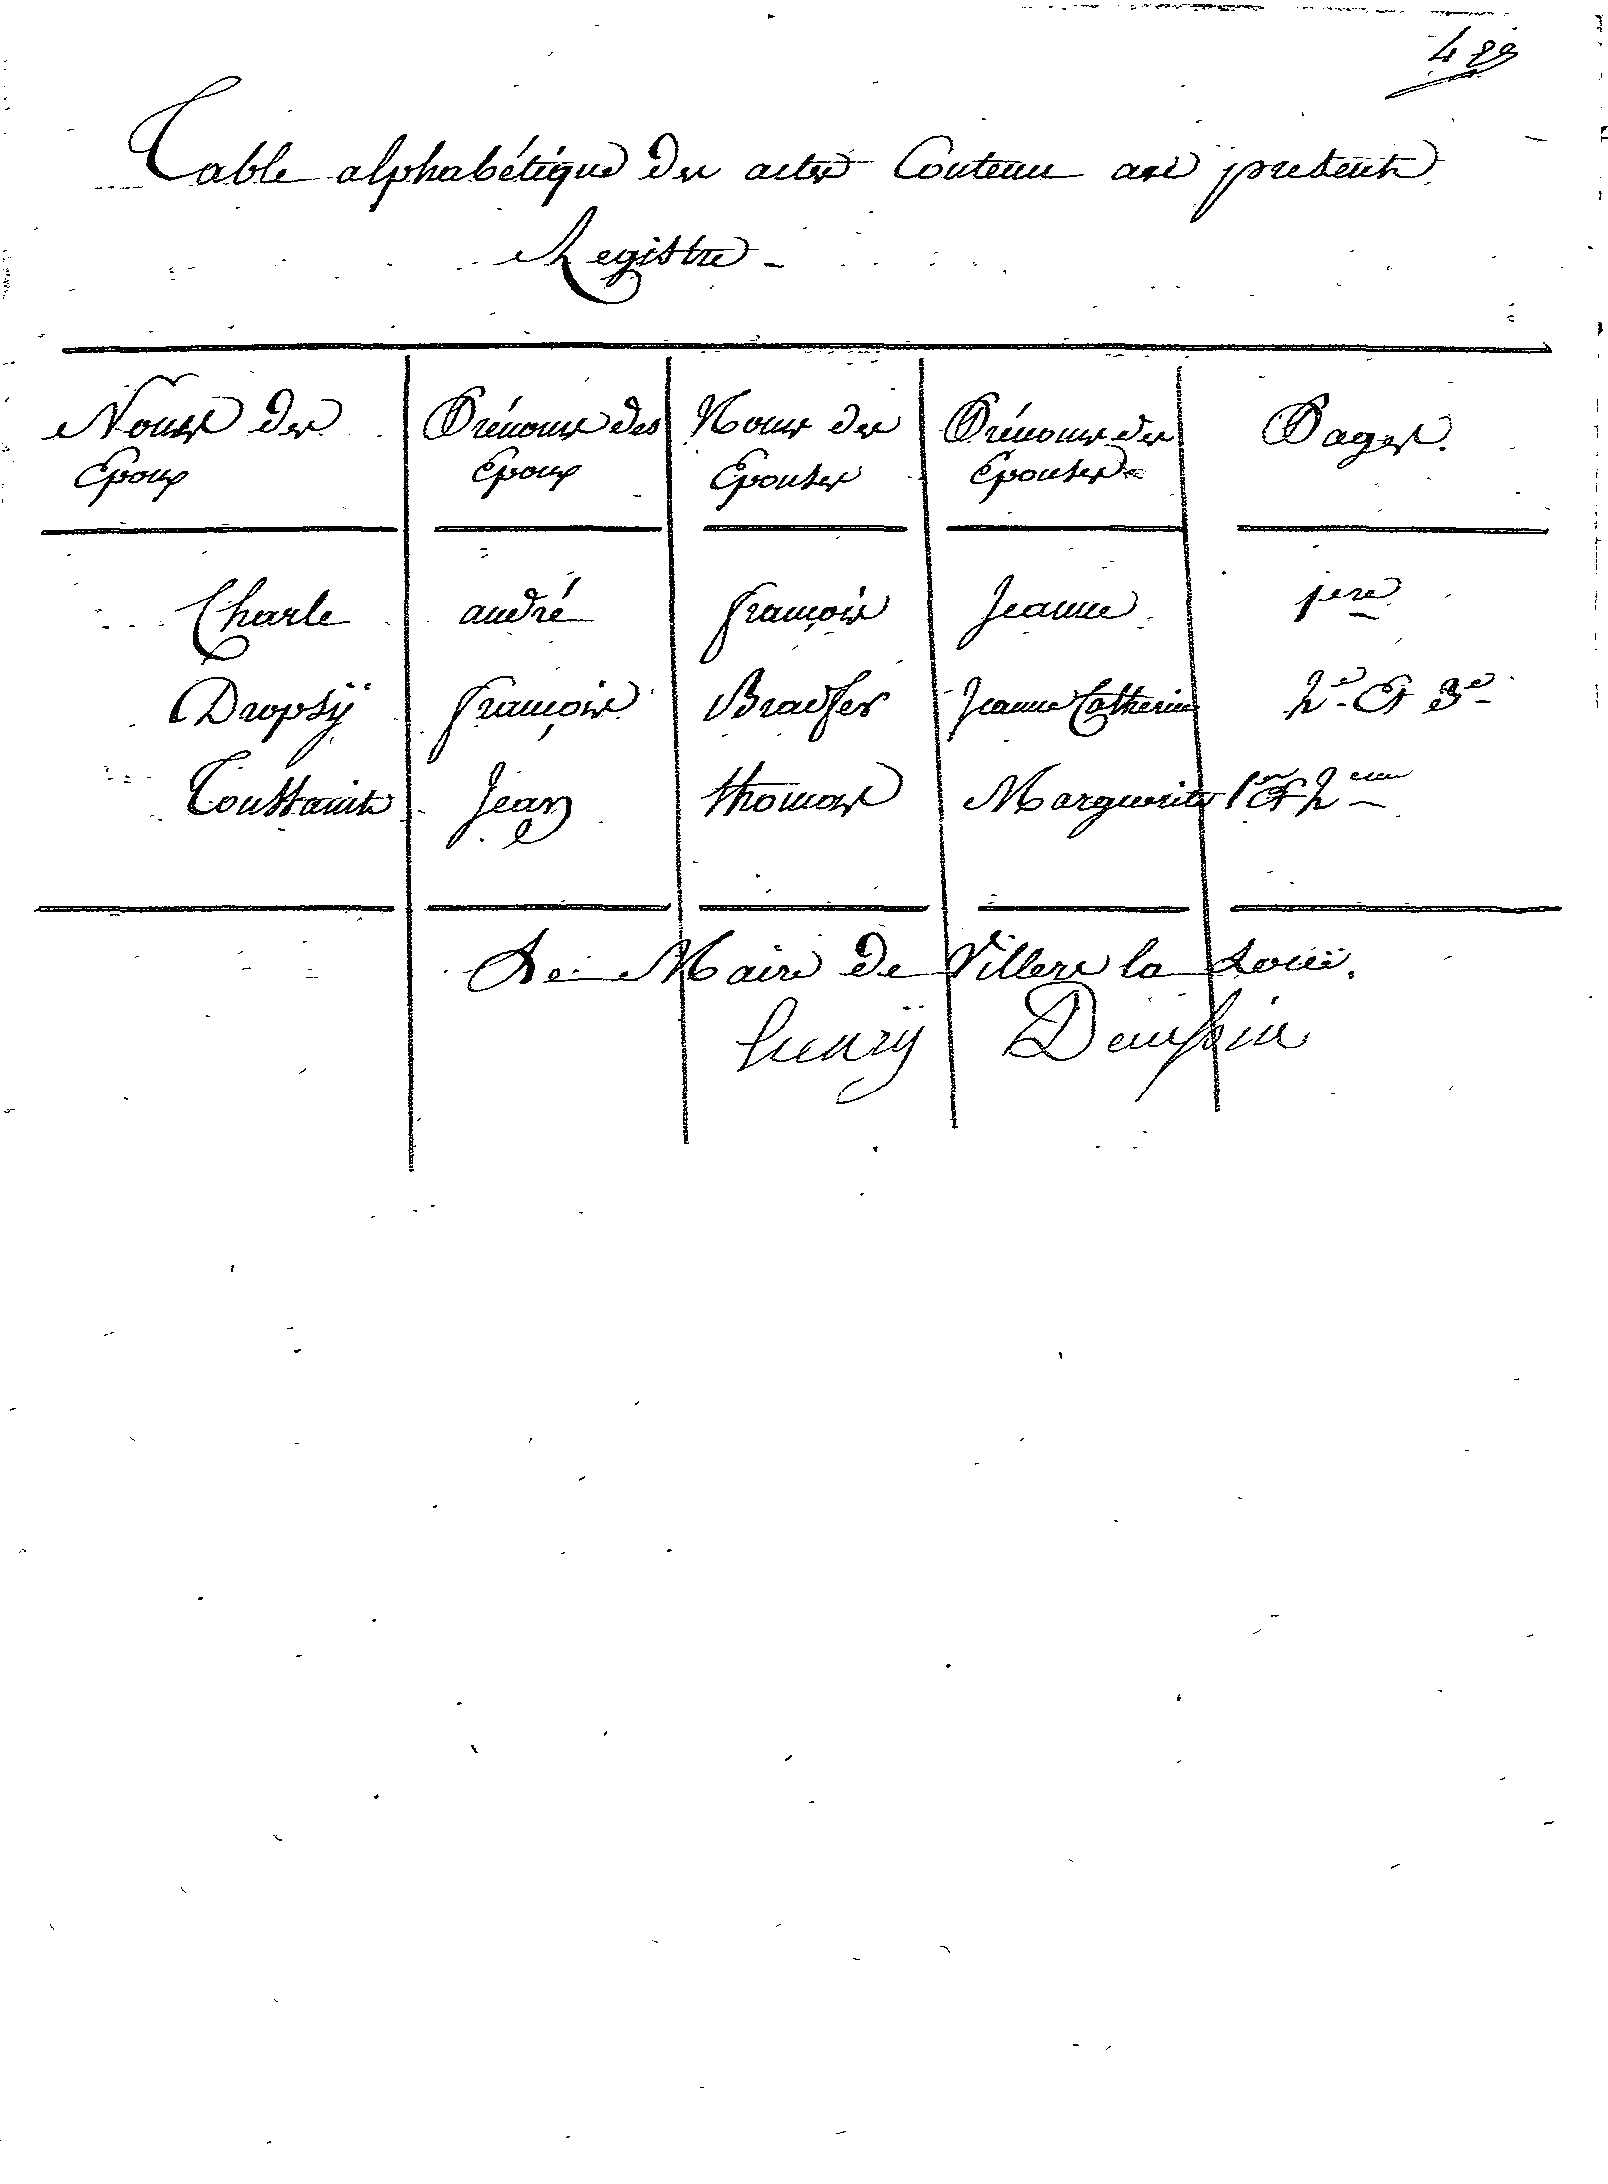 Table alphabétique des actes Contenu au présent
Registre
Noms des Epoux | Prénoms des Epoux | Noms des Epouses | Prénoms des Epouses | Pages.
Charle | andré | françois | Jeanne | 1ere
Dropsÿ | françois | | Jeanne Catherine | 2e Et 3e
Toussaint | Jean | thomas | Marguerite | 1ere Et 2eme
Le Maire de Villers la Loüe.
henrÿ